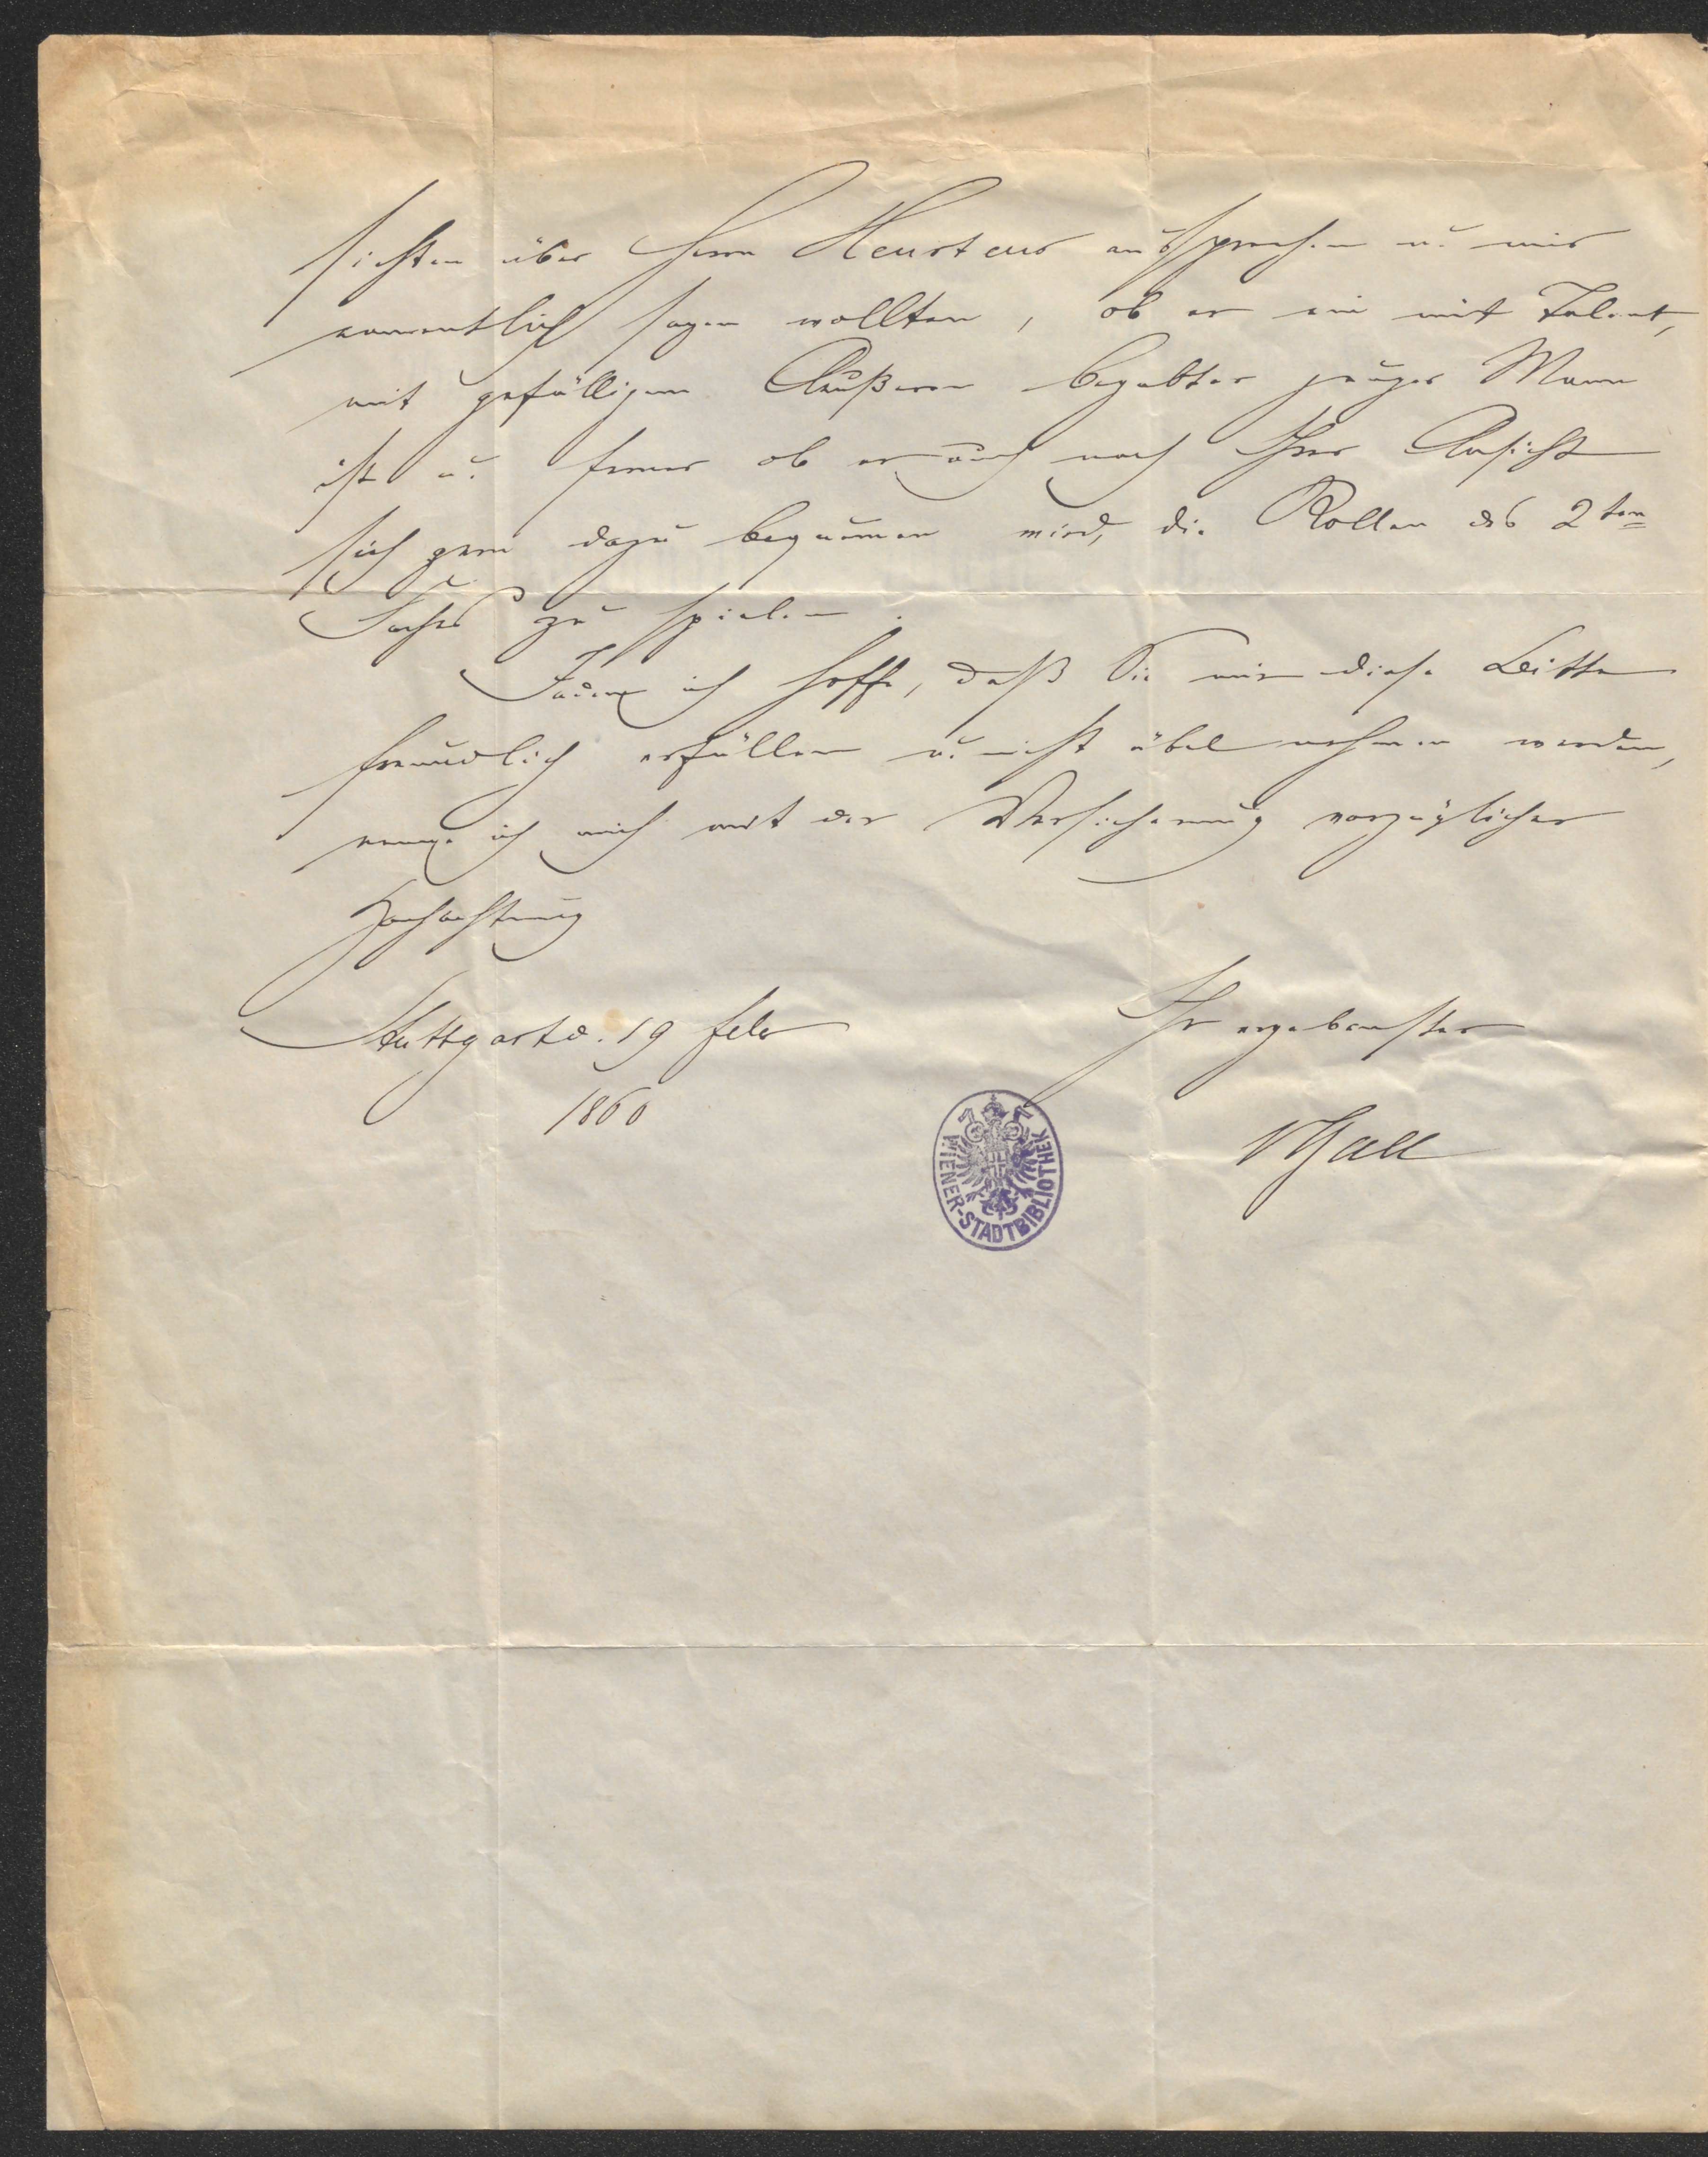 sichten über Herrn Heusteus aussprechen u. mir
namentlich sagen wollten, ob er ein mit Talent,
mit gefälligem Äußeren begabter junger Mann
ist u. ferner ob er auch nach Ihrer Ansicht
sich gern dazu bequemen wird, die Rollen des 2ten
Faches zu spielen.
Indem ich hoffe, daß Sie mir diese Bitte
freundlich erfüllen u. nicht übel nehmen werden,
nenne ich mich mit der Versicherung vorzüglicher
Hochachtung
Stuttgart d. 19 Febr
1860
Ihr ergebenster
Gall
WIENER-STADTBIBLIOTHEK